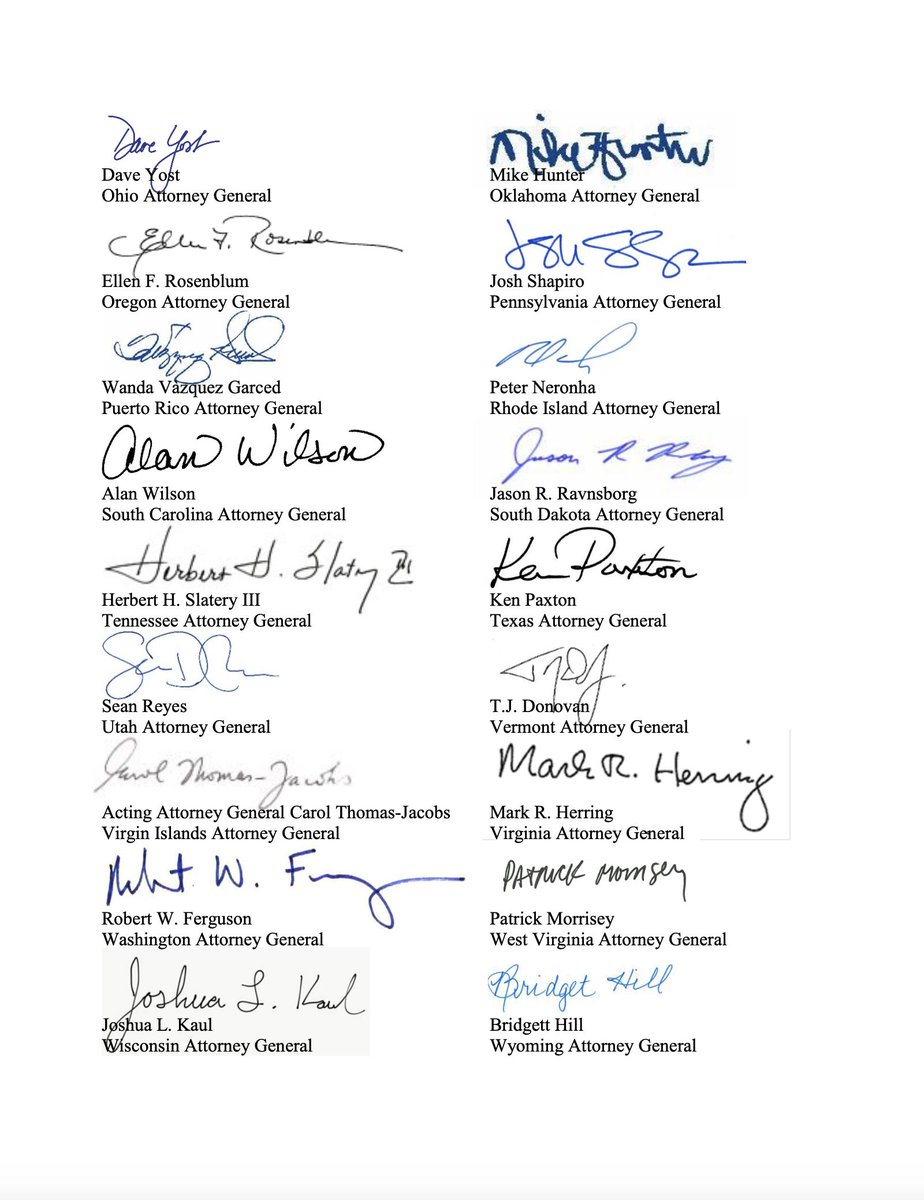 Dave Yost
Dave Yost
Ohio Attorney General
Mike Hunter
Mike Hunter
Oklahoma Attorney General
Ellen F. Rosenblum
Ellen F. Rosenblum
Oregon Attorney General
Josh Shapiro
Pennsylvania Attorney General
Wanda Vázquez Garced
Puerto Rico Attorney General
Peter Neronha
Rhode Island Attorney General
Alan Wilson
Alan Wilson
South Carolina Attorney General
Jason R
Jason R. Ravnsborg
South Dakota Attorney General
Herbert H. Slatery III
Herbert H. Slatery III
Tennessee Attorney General
Ken Paxton
Ken Paxton
Texas Attorney General
Sean Reyes
Utah Attorney General
T.J. Donovan
Vermont Attorney General
Carol Thomas-Jacobs
Acting Attorney General Carol Thomas-Jacobs
Virgin Islands Attorney General
Mark R. Herring
Mark R. Herring
Virginia Attorney General
Robert W. 
Robert W. Ferguson
Washington Attorney General
Patrick Morrisey
Patrick Morrisey
West Virginia Attorney General
Joshua L. Kaul
Joshua L. Kaul
Wisconsin Attorney General
Bridget Hill
Bridgett Hill
Wyoming Attorney General